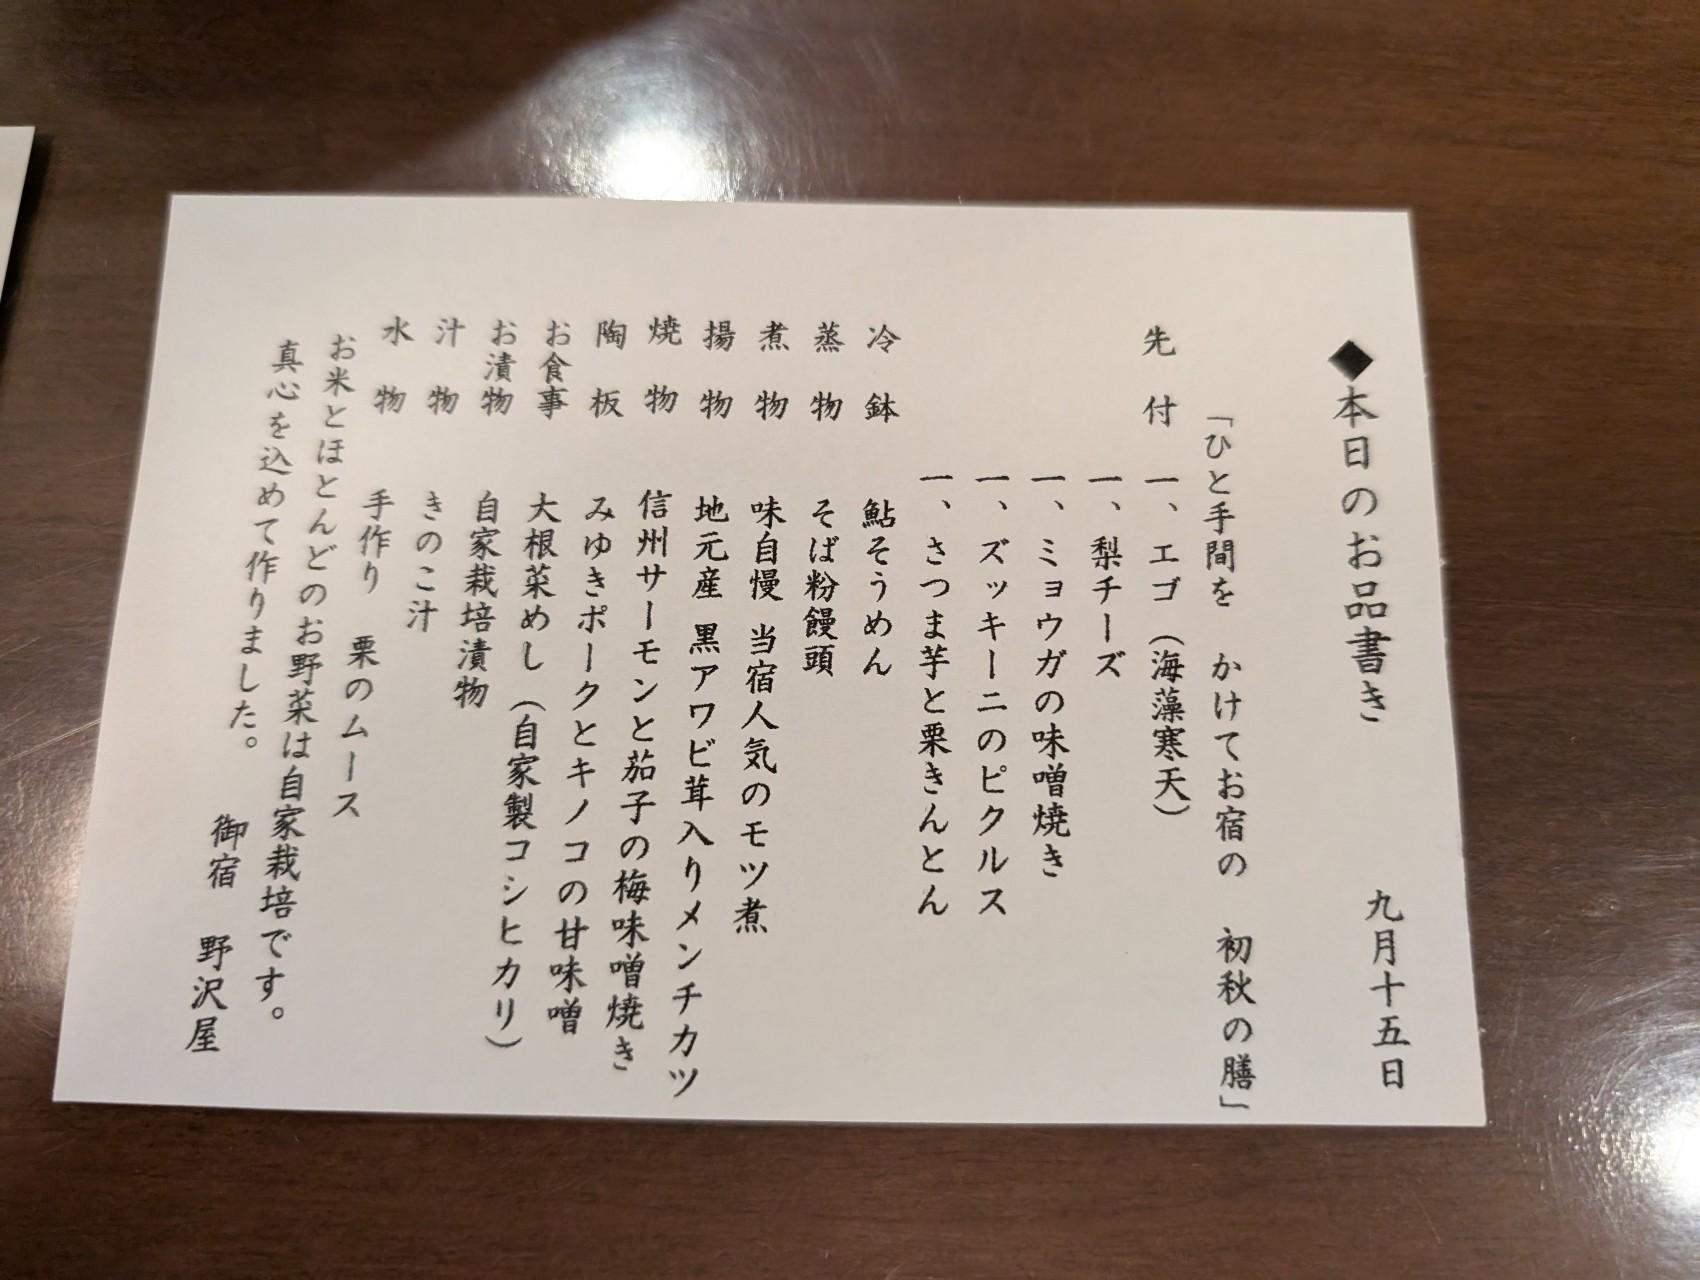 ◆本日のお品書き　九月十五日
「ひと手間を　かけてお宿の　初秋の膳」
先付　一、エゴ（海藻寒天）
一、梨チーズ
一、ミョウガの味噌焼き
一、ズッキーニのピクルス
一、さつま芋と栗きんとん
冷鉢　鮎そうめん
蒸物　そば粉饅頭
煮物　味自慢　当宿人気のモツ煮
揚物　地元産　黒アワビ茸入りメンチカツ
焼物　信州サーモンと茄子の梅味噌焼き
陶板　みゆきポークとキノコの甘味噌
お食事　大根菜めし（自家製コシヒカリ）
お漬物　自家栽培漬物
汁物　きのこ汁
水物　手作り　栗のムース
お米とほとんどのお野菜は自家栽培です。
真心を込めて作りました。
御宿　野沢屋